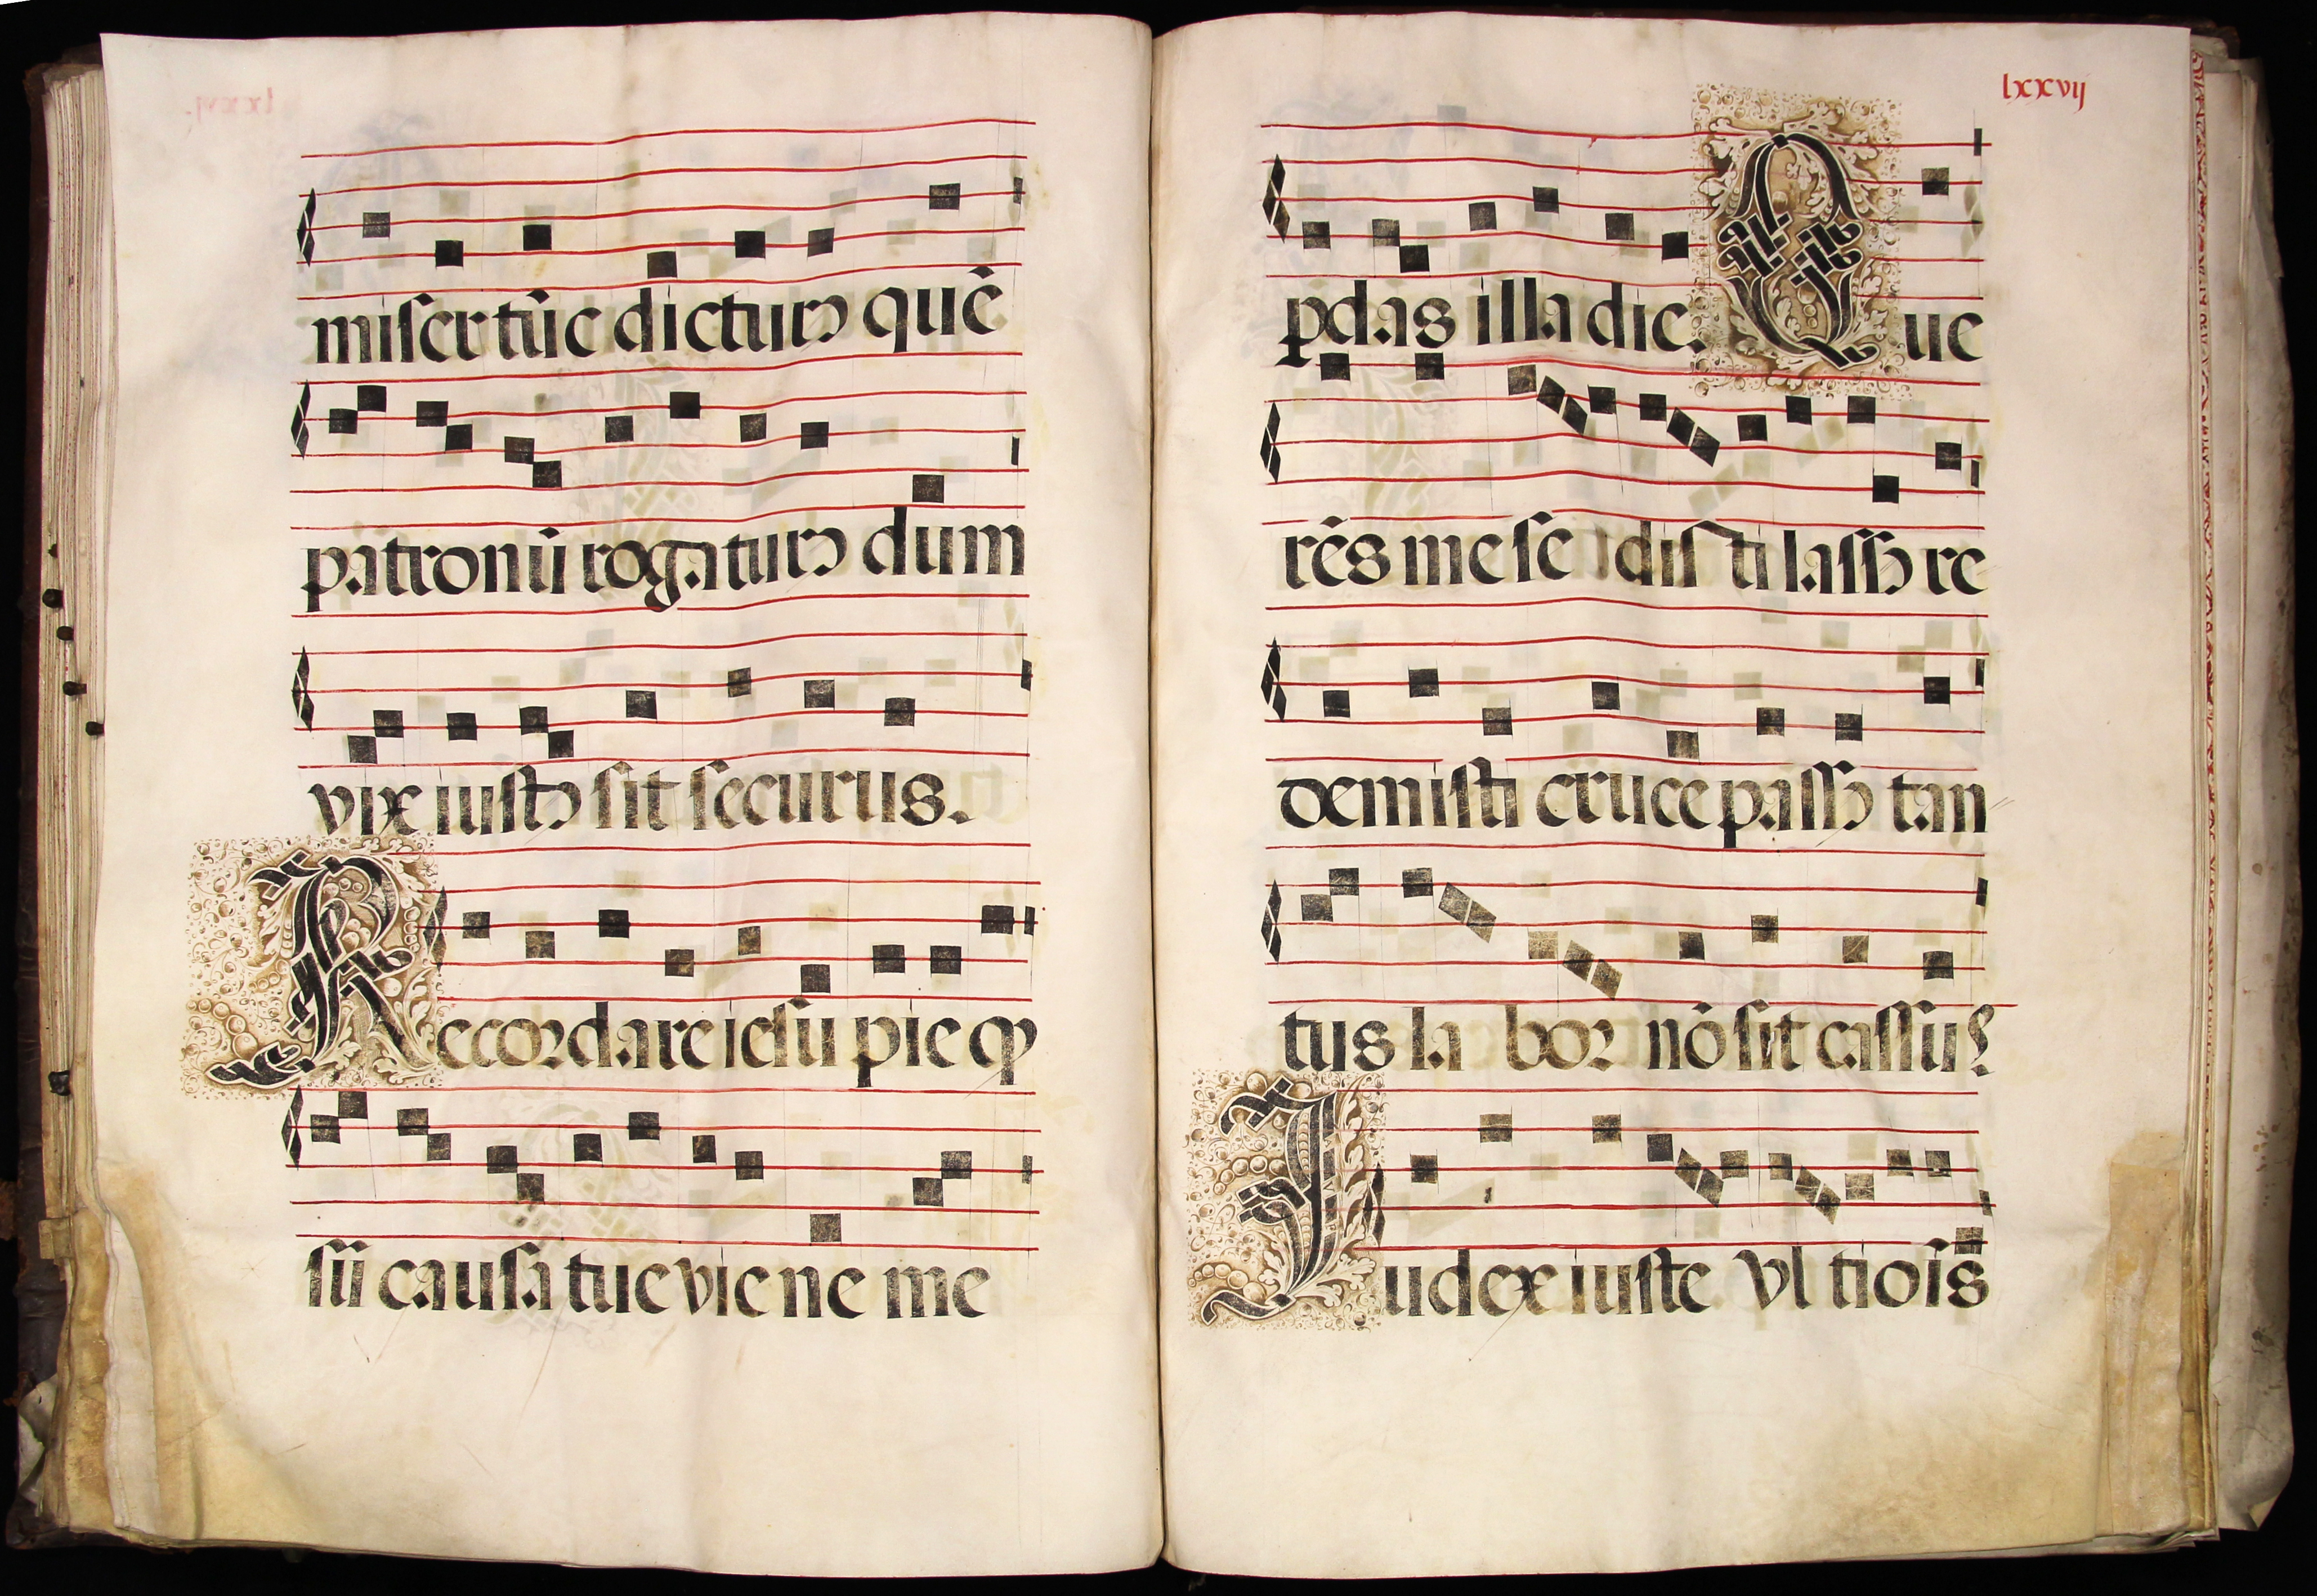 miser tūc dicturꝰ quē
patronū rogaturꝰ dum
vix iustꝰ sit securus.
Recordare iesu pie qꝫ
sū causa tue vie ne me
lxxvij
ꝑdas illa die. Que
rēs me sedisti lassꝰ re
demisti cruce passꝰ tan
tus labor nō sit cassus
Judex iuste vltiois